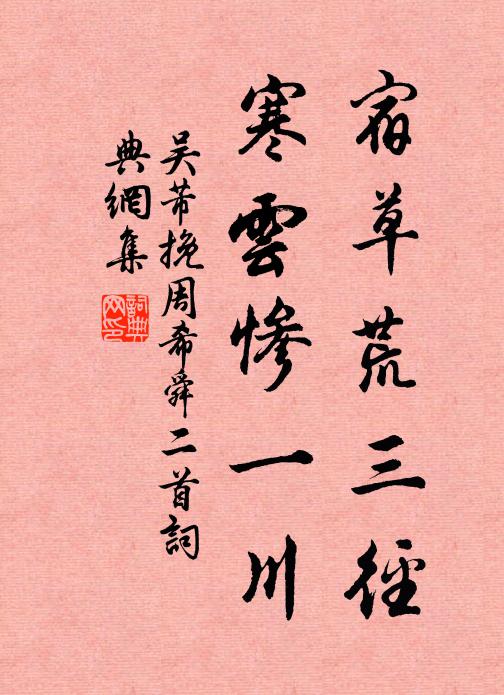 宿草荒三徑
寒雲慘一川
吴芾挽周希舜二首詞
典網集
詞典
网印